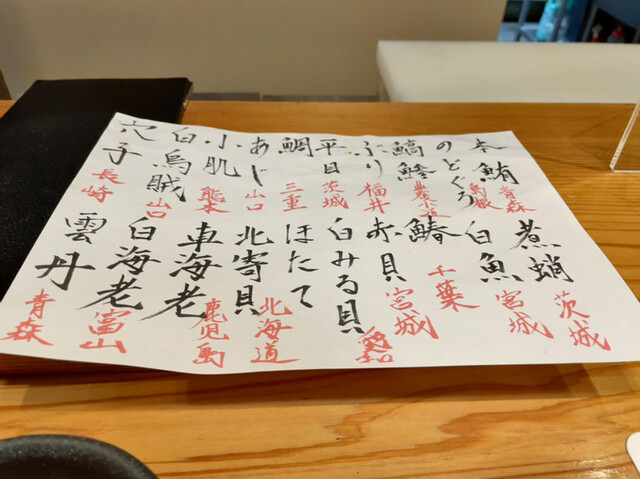 本鮪 青森
のどぐろ 島根
縞鯵
ぶり 福井
平目 茨城
鯛 三重
あじ 山口
小肌 熊本
白烏賊 山口
穴子 長崎
煮蛸 茨城
白魚 宮城
鰆 千葉
赤貝 宮城
白みる貝 愛知
ほたて
北寄貝 北海道
車海老 鹿児島
白海老 富山
雲丹 青森